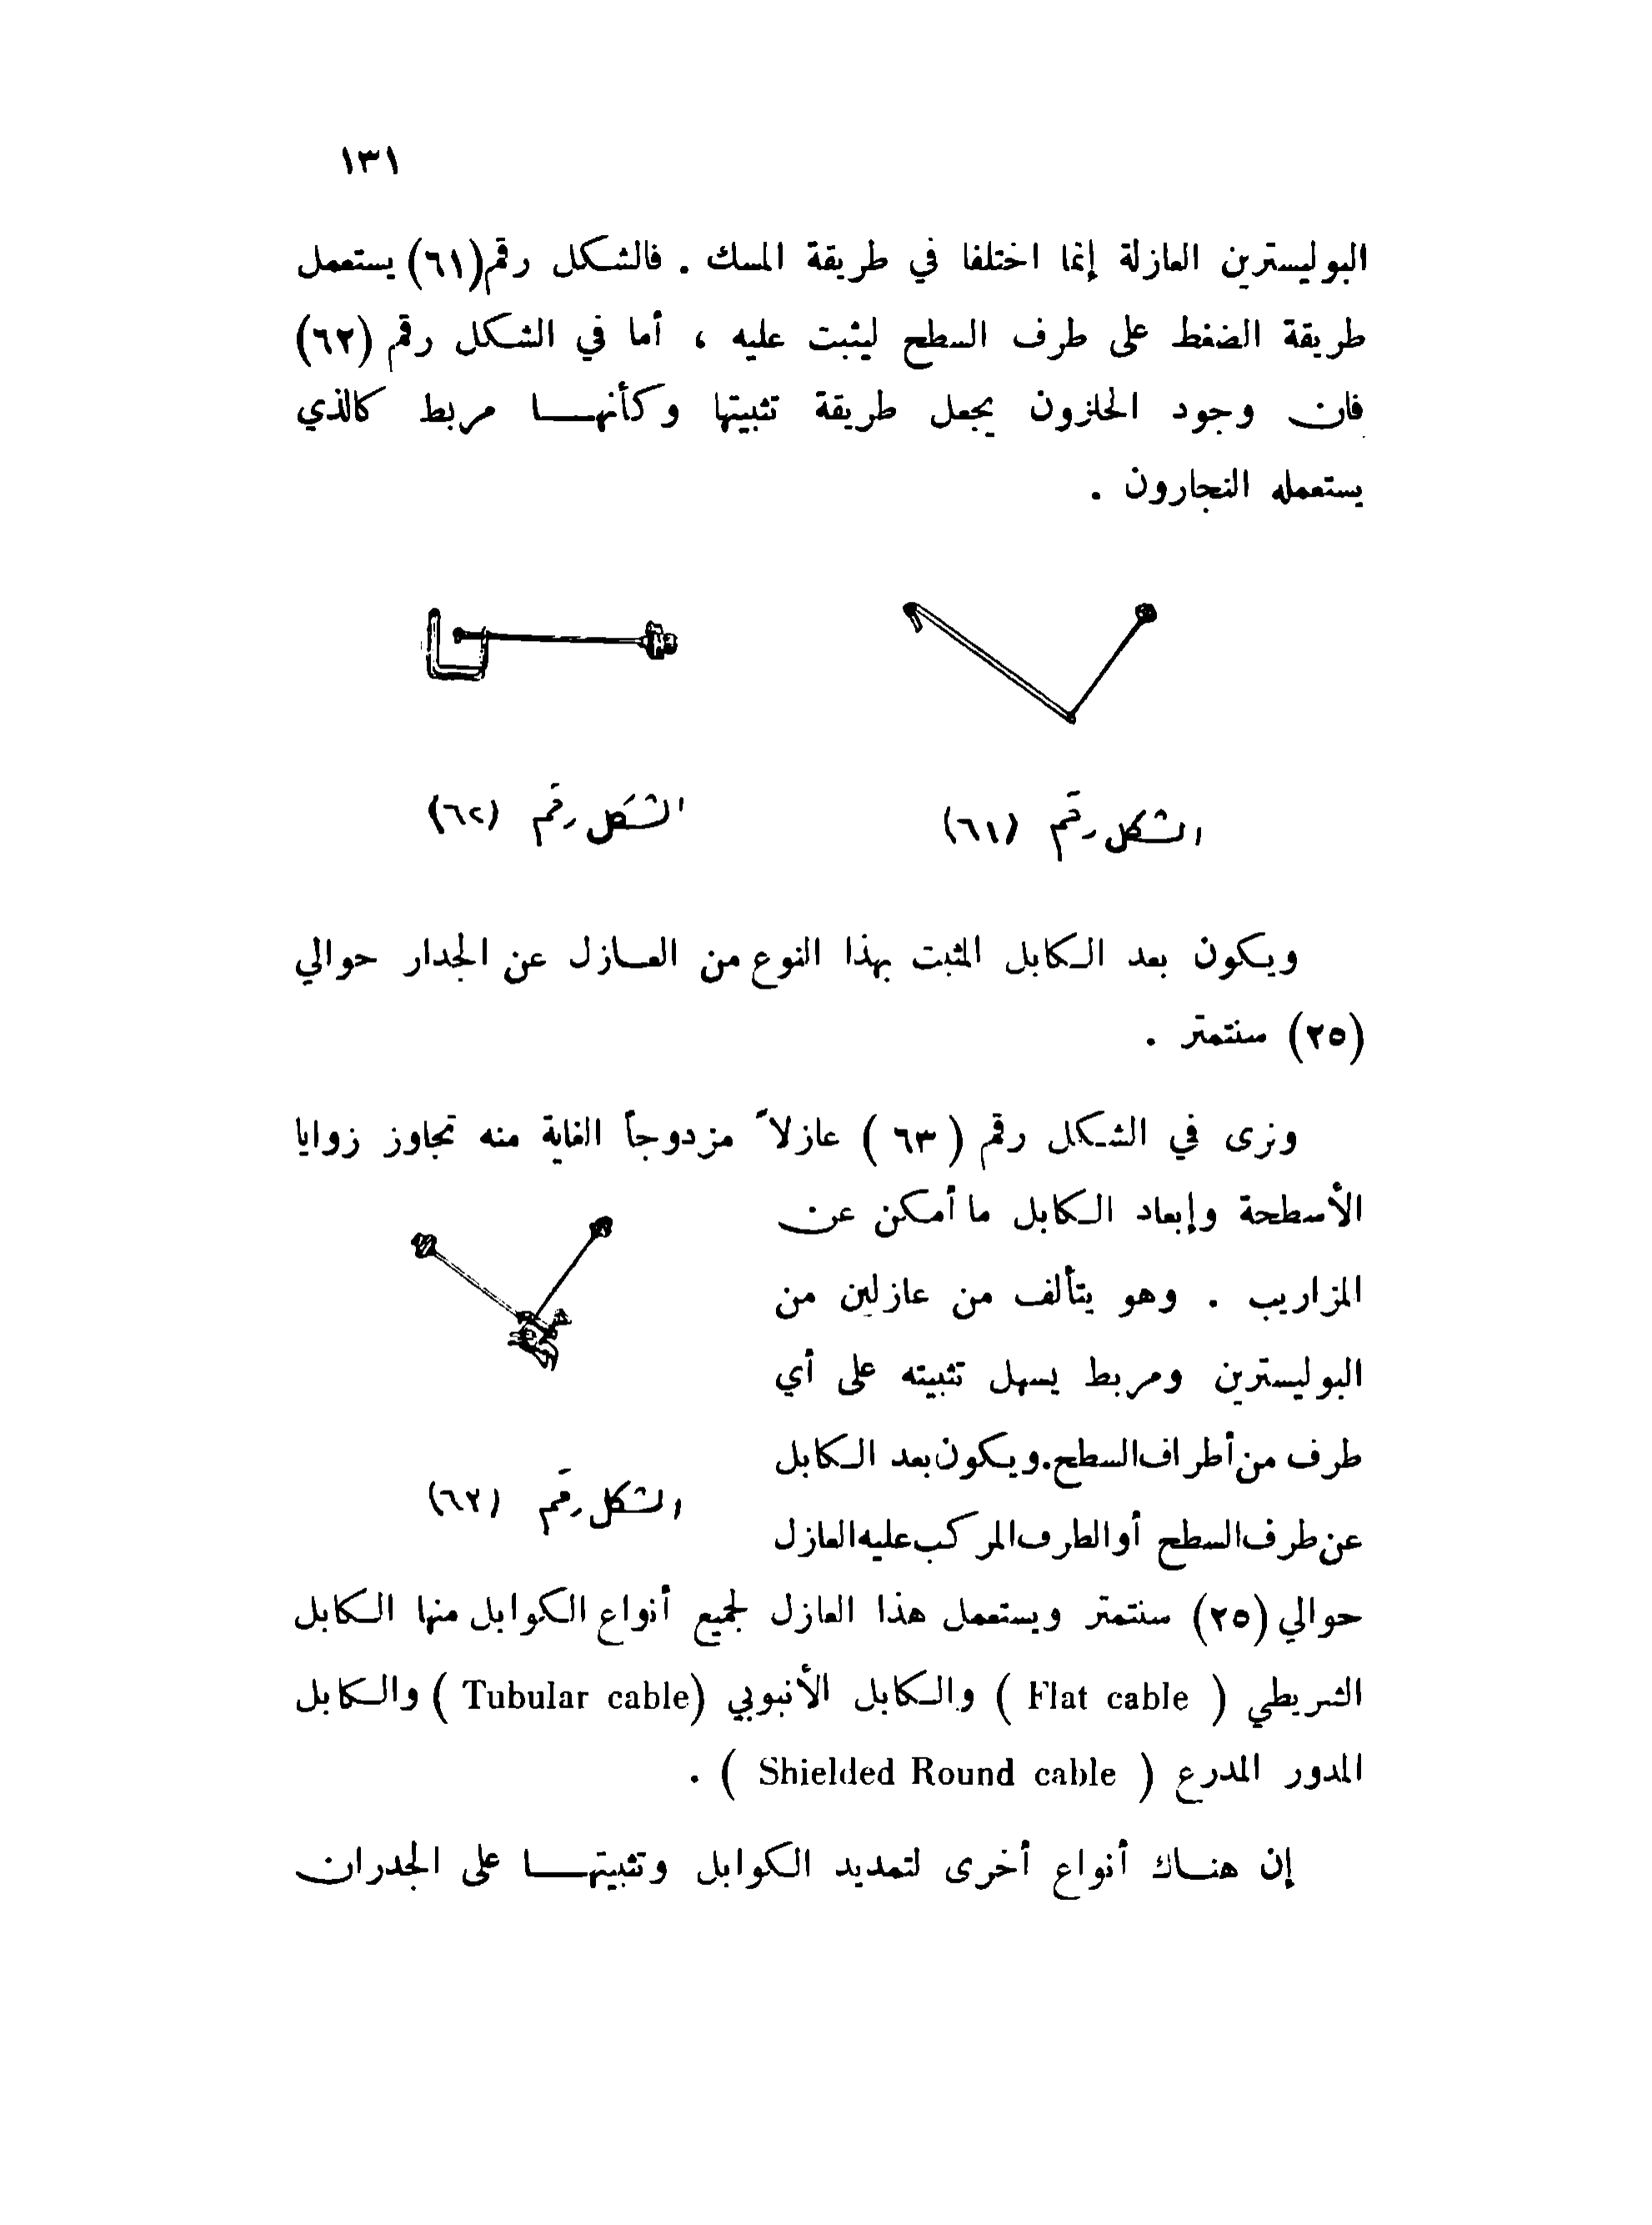 ١٣١
البوليسترين العازلة إنما اختلفا في طريقة المسك . فالشكل رقم(٦١) يستعمل
طريقة الضغط على طرف السطح ليثبت عليه ، أما في الشكل رقم (٦٢)
فان وجود الحلزون يجعل طريقة تثبيتها وكأنهـا مربط كالذي
يستعمله النجارون .
الشكل رقم (٦١)
الشكل رقم (٦٢)
ويكون بعد الكابل المثبت بهذا النوع من العـازل عن الجدار حوالي
(٢٥) سنتمتر .
ونرى في الشكل رقم ( ٦٣ ) عازلاً مزدوجاً الغاية منه تجاوز زوايا
الأسطحة وإبعاد الكابل ما أمكن عن
المزاريب . وهو يتألف من عازلين من
البوليسترين ومربط يسهل تثبيته على أي
طرف من أطراف السطح.ويكون بعد الكابل
عن طرف السطح أو الطرف المركب عليه العازل
الشكل رقم (٦٣)
حوالي (٢٥) سنتمتر ويستعمل هذا العازل لجميع أنواع الكوابل منها الكابل
الشريطي ( Flat cable ) والكابل الأنبوبي (Tubular cable ) والكابل
المدور المدرع ( Shielded Round cable ) .
إن هنـاك أنواع أخرى لتمديد الكوابل وتثبيتهـا على الجدران